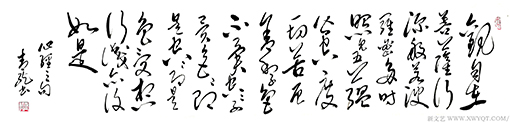 观自在
菩萨行
深般若波
罗蜜多时
照见五蕴
皆空度
一切苦厄
舍利子色
不异空空
不异色色即
是空空即是
色受想
行识亦复
如是
心经之句
新文艺 WWW.XWYQT.COM